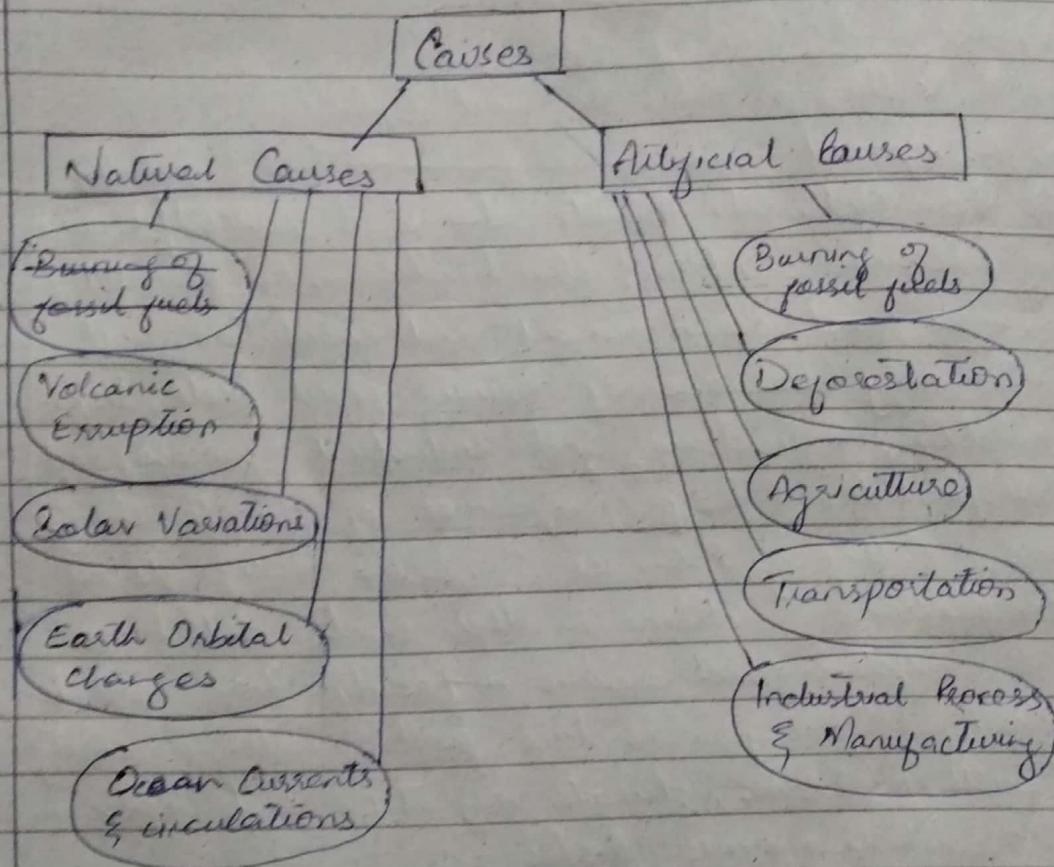 Causes
Natural Causes
Artificial Causes
Burning of
fossil fuels
Volcanic
Erruption
Solar Variations
Earth Orbital
Changes
Ocean Currents
& circulations
Burning of
fossil fuels
Deforestation
Agriculture
Transportation
Industrial Process
& Manufacturing